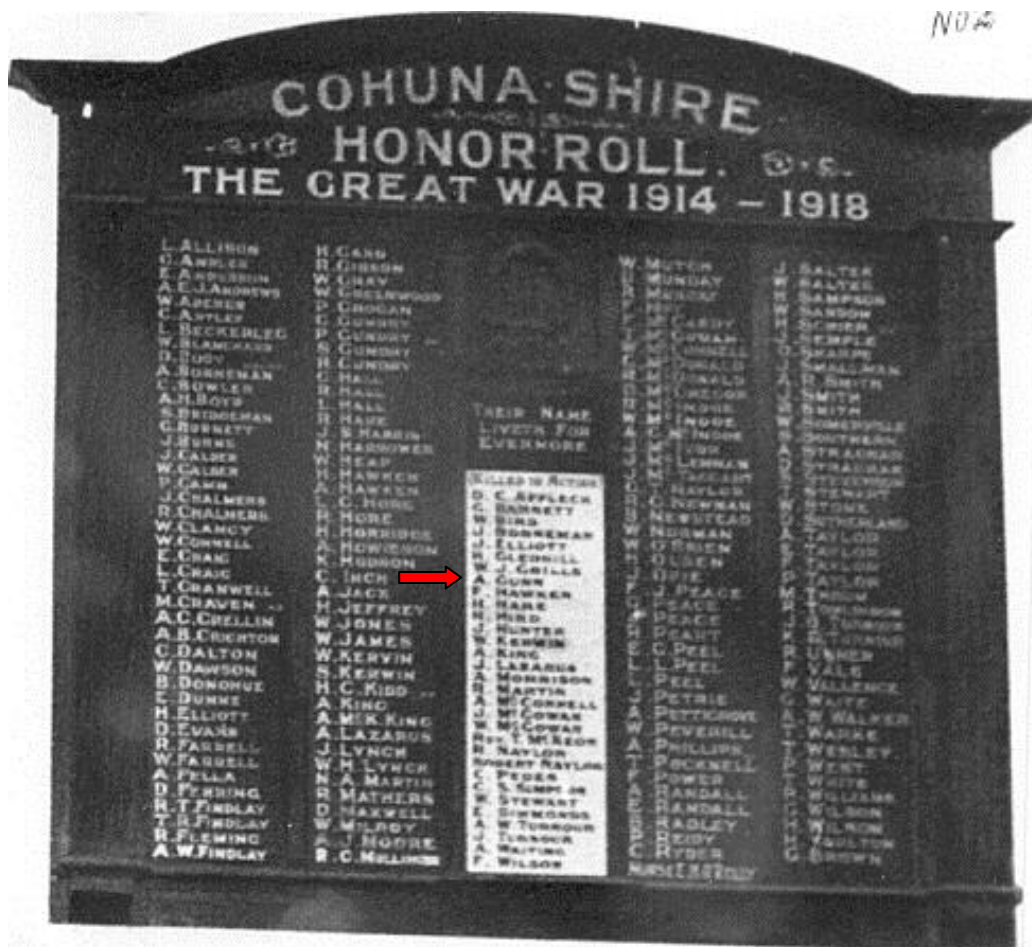 No 2
COHUNA · SHIRE
HONOR · ROLL.
THE GREAT WAR 1914 – 1918
L. ALLISON
G. AMBLER
E. ANDERSON
A.E.J. ANDREWS
W.
C. ANTLEP
L. BECKERLEG
W. BLANCHARD
D. BODY
A. BORNEMAN
C. BOWLER
A.H. BOYD
S. BRIDGEMAN
G. BURNETT
J. BURNS
J. CALDER
W. CALDER
P. CAMM
J. CHALMERS
R. CHALMERS
W. CLANCY
W. CONNELL
E. CRAIG
L. CRAIG
T. CRANWELL
M. CRAVEN
A.C. CRELLIN
A.B. CRICHTON
C. DALTON
W. DAWSON
B. DONOHUE
E. DUNNE
H. ELLIOTT
D. EVANS
R. FARRELL
W. FARRELL
A. FELLA
D. FEHRING
R.T. FINDLAY
T.R. FINDLAY
R. FLEMING
A.W. FINDLAY
H. CARD
R. GIBSON
W. GRAY
W. GREENWOOD
P. GROGAN
C. GUNDRY
P. GUNDRY
S. GUNDRY
H. GUNDRY
C. HALL
R. HALL
L. HALL
R. HARE
J.S. HARRIS
N. HARROWER
W. HEAP
H. HAWKEN
A. HAWKEN
L.C. HORE
R. HORE
H. HORRIDGE
A. HOWIESON
K. HUDSON
C. INCH
A. JACK
H. JEFFREY
W. JONES
W. JAMES
W. KERVIN
S. KERWIN
H.C. KIDD
A. KING
A. MCK. KING
A. LAZARUS
J. LYNCH
W.H. LYNCH
N.A. MARTIN
R. MATHERS
D. MAXWELL
W. MILROY
A.J. MOORE
R.C. MULLINGER
THEIR NAME
LIVETH FOR
EVERMORE
KILLED IN ACTION
D.C. AFFLECK
C. BARNETT
W. BIRD
J. BORNEMAN
J. ELLIOTT
R. GLEDHILL
W.J. GRILLS
A. GUNN
F. HAWKEN
H. HARE
R. HIRD
J. HUNTER
W. KERWIN
A. KING
J. LAZARUS
A. MORRISON
R. MARTIN
A. MCCONNELL
J. MCGOWAN
W. MCGOWAN
REV. T. MCKEON
R. NAYLOR
ROBERT NAYLOR
C. PEDER
C.S. SIMPSON
W. STEWART
E. SIMMONDS
A.W. TURNOUR
J. TURNOUR
A. WAITING
F. WILSON
W. MUTCH
MUNDAY
MURRAY
MCCONNELL
MCDONALD
MCDONALD
MCGREGOR
MCINDOE
W. MCINDOE
MCINDOE
NAYLOR
NEWMAN
NEWSTEAD
W. NORMAN
O'BRIEN
OLSEN
OPIE
J. PEACE
PEACE
PEACE
PEART
E.C. PEEL
L.L. PEEL
L. PEEL
J. PETRIE
A. PETTIGROVE
W. PEVERILL
A. PHILLIPS
T. POCKNELL
F. POWER
A. RANDALL
E. RANDALL
RADLEY
REIDY
C. RYDER
NURSE E.M. O'REILLY
J. SALTER
W. SALTER
H. SAMPSON
W. SANSOM
H. SCHIER
J. SEMPLE
SHARPE
J. SMALLMAN
A.R. SMITH
J. SMITH
SMITH
W. SOMERVILLE
SOUTHERN
A. STRACHAN
STRACHAN
STEVENSON
STEWART
W. STONE
SUTHERLAND
A. TAYLOR
S. TAYLOR
TAYLOR
TOMLINSON
TURNOUR
F. VALE
W. VALLENCE
G. WAITE
A.W. WALKER
T. WARKE
WEBLEY
P. WEST
WHITE
R. WILLIAMS
WILSON
WILSON
YOULTON
BROWN